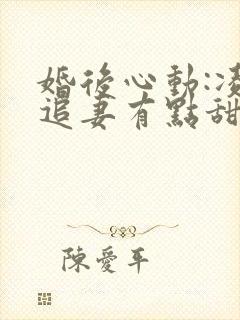 婚後心動:凌
追妻有點甜
陳愛平